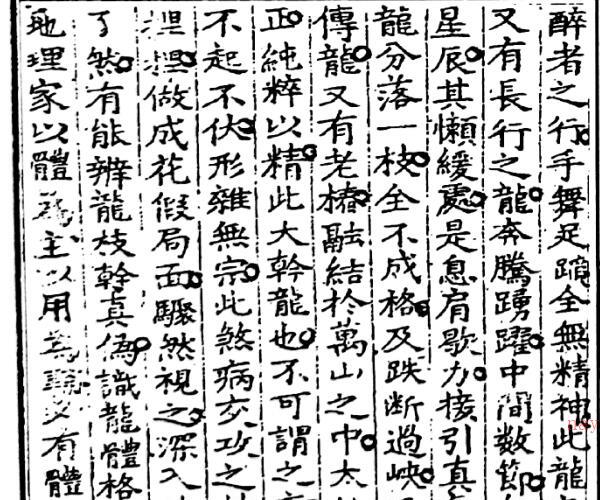 醉者之行手舞足蹈全無精神此龍
又有長行之龍奔騰踴躍中間數節
星辰其懶緩處是息肩歇力接引真
龍分落一枝全不成格及跌斷過峽
傳龍又有老椿融結於萬山之中太
正純粹以精此大幹龍也不可謂之
不起不伏形雜無宗此煞病交攻之
裡做成花假局面驟然視之深入
了然有能辨龍枝幹真偽識龍體格
地理家以體為主以用為又有體